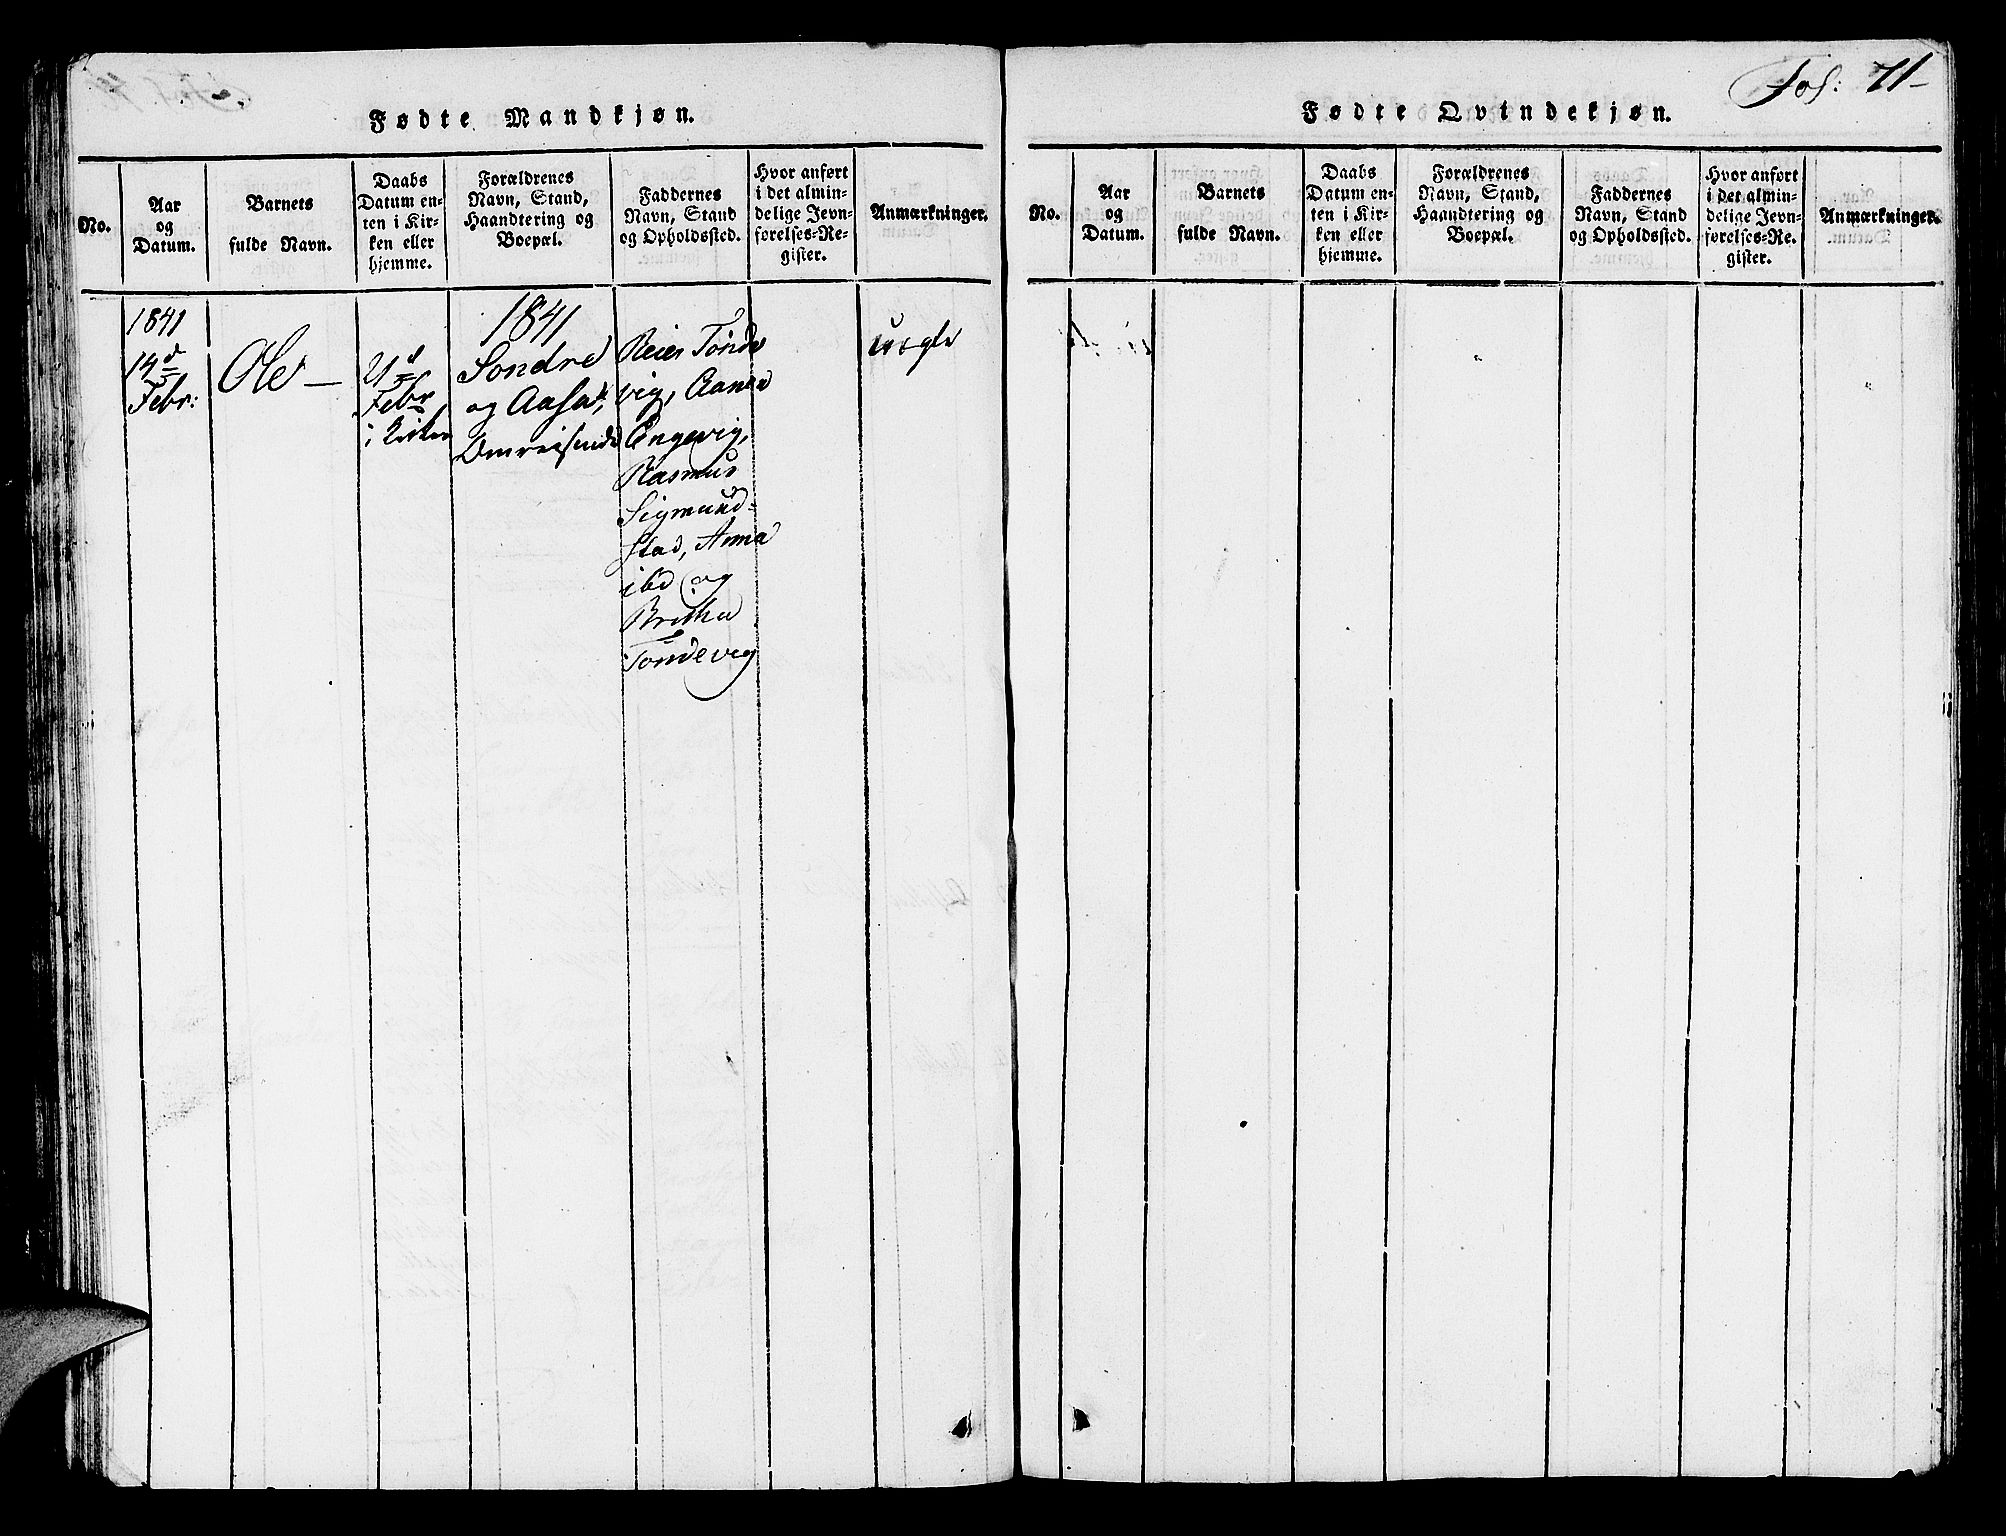 Fol: 71-
Fødte Mandkjøn.
No.
Aar
og
Datum.
Barnets
fulde Navn.
Daabs
Datum en-
ten i Kir-
ken eller
hjemme.
Forældrenes
Navn, Stand,
Haandtering og
Boepæl.
Faddernes
Navn, Stand
og Opholdssted.
Hvor anført
i det almin-
delige Jevn-
førelses-Re-
gister.
Anmærkninger.
1841
14d
Febr:
Ole –
21d
Febr
i Kirken
1841
Sondre
og Aasa,
Omreisende
Reier Tønde
vig, Aanen
Engevig,
Rasmus
Sigmund-
stad, Anna
ibd og
Brithe
Tøndevig
uægte
Fødte Qvindekjøn.
No.
Aar
og
Datum.
Barnets
fulde Navn.
Daabs
Datum en-
ten i Kir-
ken eller
hjemme.
Forældrenes
Navn, Stand,
Haandtering og
Boepæl.
Faddernes
Navn, Stand
og Opholdssted.
Hvor anført
i det almin-
delige Jevn-
førelses-Re-
gister.
Anmærkninger.